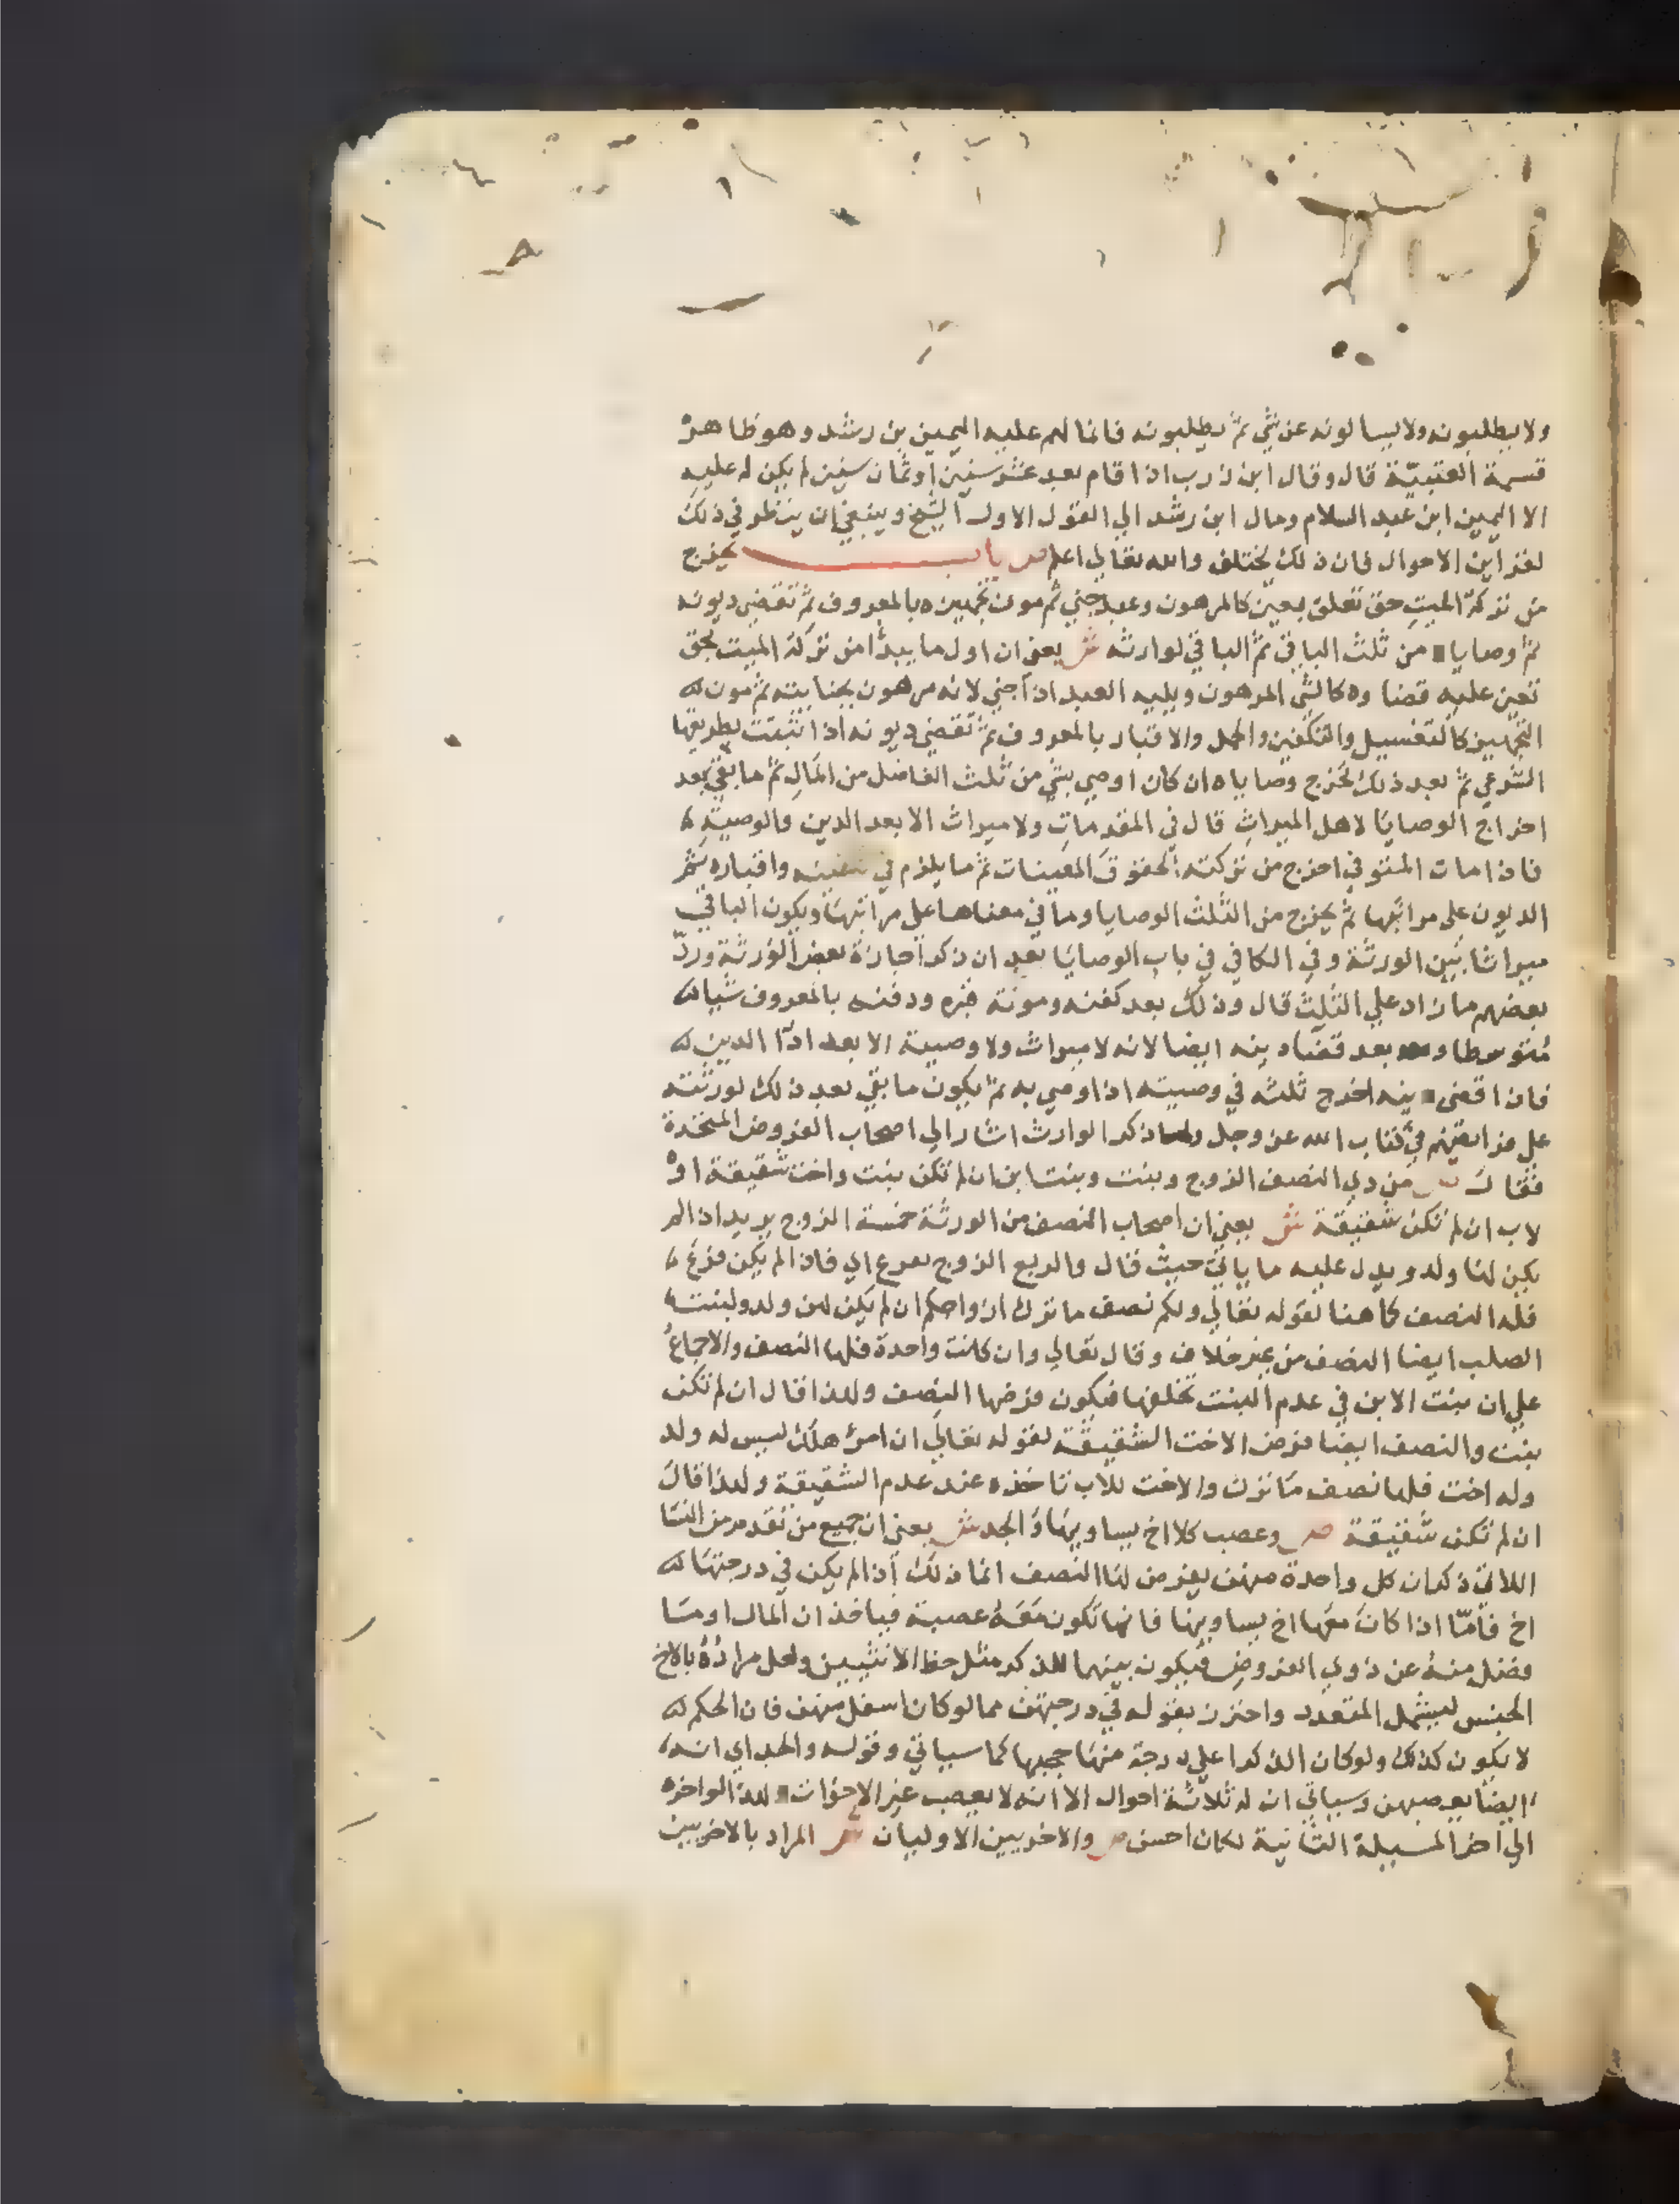 ولا يطلبونه ولا يسالونه عن شي ثم يطلبونه فانما لهم عليه اليمين بن رشد وهو ظاهر
قسمة العتبية قال وقال ابن زرب اذا قام بعد عشر سنين او ثمان سنين لم يكن له عليه
الا اليمين ابن عبد السلام ومال ابن رشد الي القول الاول الشيخ وينبغي ان ينظر في ذلك
لقراين الاحوال فان ذلك يختلف والله تعالي اعلم ص باب يخرج
من تركة الميت حق تعلق بعين كالمرهون وعبد جني ثم مون تجهيزه بالمعروف ثم تقضي ديونه
ثم وصايا من ثلث الباقي ثم الباقي لوارثه ش يعني ان اول ما يبدأ من تركة الميت بحق
تعين عليه قضاوه كالشي المرهون ويليه العبد اذا جني لانه مرهون بجنايته ثم مون
التجهيز كالتغسيل والتكفين والحمل والاقبار بالمعروف ثم تقضي ديونه اذا ثبتت بطريقها
الشرعي ثم بعد ذلك تخرج وصاياه ان كان اوصي بشي من ثلث الفاضل من المال ثم ما بقي بعد
اخراج الوصايا لاهل الميراث قال في المقدمات ولا ميراث الا بعد الدين والوصية
فاذا مات المتوفي اخرج من تركته الحقوق المعينات ثم ما يلزم في تكفينه واقباره ثم
الديون علي مراتبها ثم يخرج من الثلث الوصايا وما في معناها علي مراتبها ويكون الباقي
ميراثا بين الورثة وفي الكافي في باب الوصايا بعد ان ذكر اجازة بعض الورثة ورد
بعضهم ما زاد علي الثلث قال وذلك بعد كفنه ومونة قبره ودفنه بالمعروف شيا
متوسطا و بعد قضا دينه ايضا لانه لا ميراث ولا وصية الا بعد ادا الدين
فان اقضي ينه اخرج ثلثه في وصيته اذا اوصي به ثم يكون ما بقي بعد ذلك لورثته
علي فرايضهم في كتاب الله عز وجل ولما ذكر الوارث اشار الي اصحاب الفروض المتخذة
فقال ص من ذي النصف الزوج وبنت وبنت ابن ان لم تكن بنت واخت شقيقة او
لاب ان لم تكن شقيقة ش يعني ان اصحاب النصف من الورثة خمسة الزوج يريد اذا لم
يكن لها ولد ويدل عليه ما ياتي حيث قال والربع الزوج بفرع اي فاذا لم يكن فرع
فله النصف كما هنا لقوله تعالي ولكم نصف ما ترك ازواجكم ان لم يكن لهن ولد ولبنت
الصلب ايضا النصف من غير خلاف وقال تعالي وان كانت واحدة فلها النصف والاجماع
علي ان بنت الابن في عدم البنت تخلفها فيكون فرضها النصف ولذا قال ان لم تكن
بنت والنصف ايضا فرض الاخت الشقيقة لقوله تعالي ان امرؤ هلك ليس له ولد
وله اخت فلها نصف ما ترك والاخت للاب تاخذه عند عدم الشقيقة ولذا قال
ان لم تكن شقيقة ص وعصب كلا اخ يساويها والجد ش يعني ان جميع من تقدم من النسا
اللاتي ذكر ان كل واحدة منهن يفرض لها النصف انما ذلك اذا لم يكن في درجتها
اخ فأمّا اذا كان معها اخ يساويها فانها تكون معه عصبة فياخذان المال او ما
فضل منه عن ذوي الفروض فيكون بينهما للذكر مثل حظ الانثيين ولعل مراده بالاخ
الجنس ليشمل المتعدد واحترز بقوله في درجتهن مما لو كان اسفل منهن فان الحكم
لا يكون كذلك ولو كان الذكر اعلي درجة منها حجبها كما سياتي وقوله والجد اي انه
ايضا يعصبهن وسياتي ان له ثلاثة احوال الا انه لا يعصب غير الاخوات لذا لو اخره
الي اخر المسيلة الثانية لكان احسن ص والاخريين الاوليان ش المراد بالاخريين